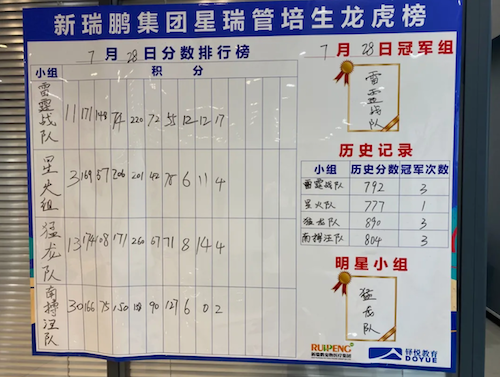 新瑞鹏集团星瑞管培生龙虎榜
7月28日分数排行榜
小组 积分
雷霆战队 11 171 148 74 220 72 55 12 12 17
星火组 3 169 57 206 201 42 75 6 11 4
猛龙队 13 174 108 171 260 67 71 8 14 4
南搏汪队 30 166 75 150 90 127 6 0 2
7月28日冠军组
雷霆战队
历史记录
小组 历史分数 冠军次数
雷霆战队 792 3
星火队 777 1
猛龙队 890 3
南搏汪队 804 3
明星小组
猛龙队
RUIPENG
新瑞鹏宠物医疗集团
铎悦教育
DOYUE